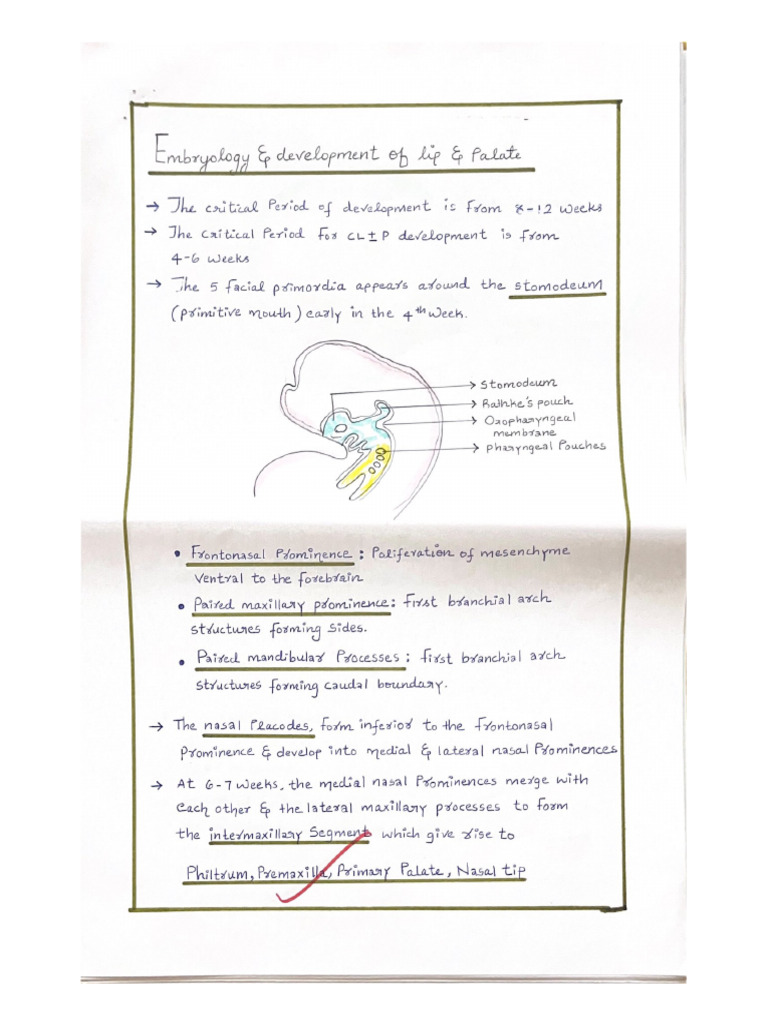 Embryology & development of lip & Palate
→ The critical Period of development is from 8-12 weeks
→ The critical Period for CL±P development is from
4-6 weeks
→ The 5 facial primordia appears around the stomodeum
(primitive mouth) early in the 4th week.
→ Stomodeum
→ Rathke's pouch
→ Oropharyngeal
membrane
→ Pharyngeal Pouches
• Frontonasal Prominence : Poliferation of mesenchyme
ventral to the forebrain
• Paired maxillary prominence : first branchial arch
structures forming sides.
• Paired mandibular Processes : first branchial arch
structures forming caudal boundary.
→ The nasal Placodes, form inferior to the frontonasal
Prominence & develop into medial & lateral nasal Prominences
→ At 6-7 weeks, the medial nasal Prominences merge with
each other & the lateral maxillary processes to form
the intermaxillary Segment which give rise to
Philtrum, Premaxilla, Primary Palate, Nasal tip